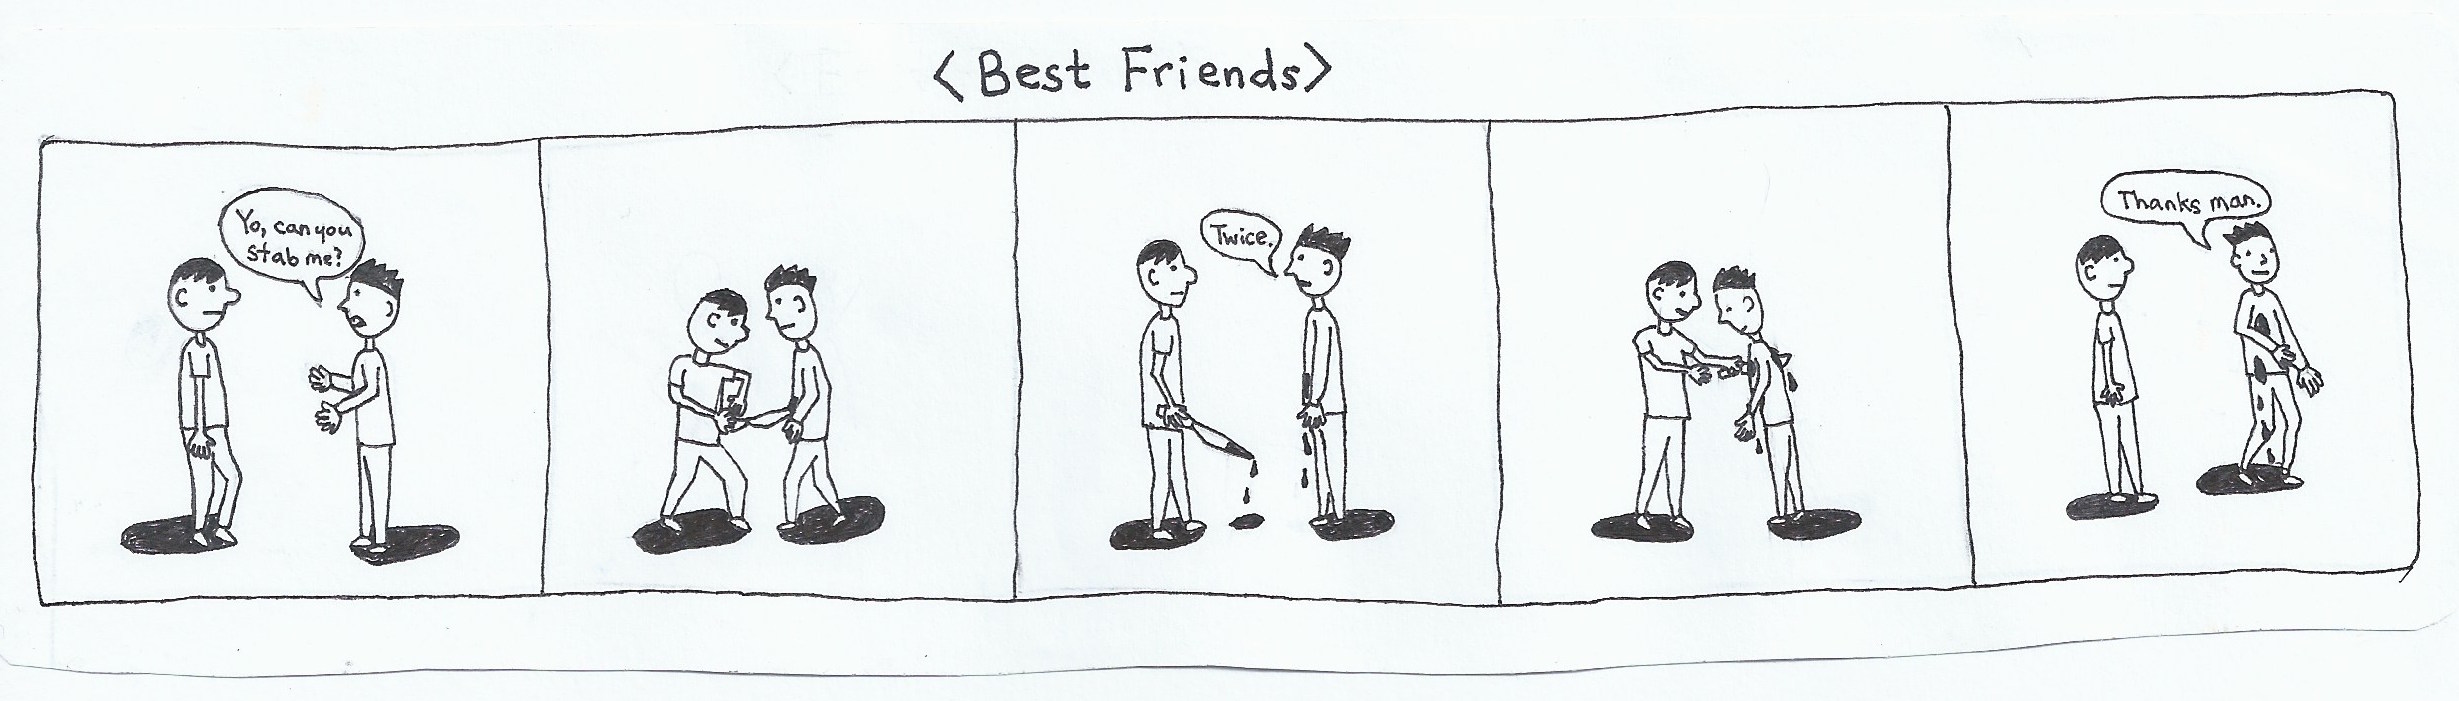 <Best Friends>
Yo, can you
stab me?
Twice.
Thanks man.